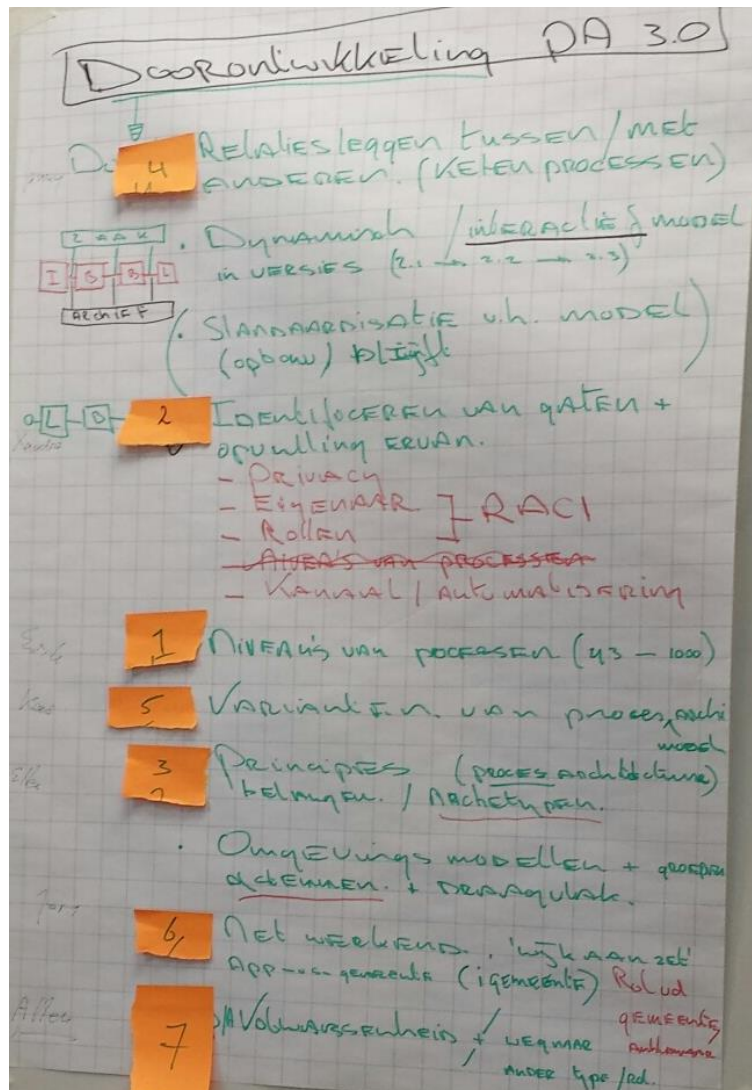 Doorontwikkeling PA 3.0
4 Relaties leggen tussen / met
anderen. (Ketenprocessen)
ZAAK
I B B L
Archief
. Dynamisch / interactief model
in versies (2.1 → 2.2 → 2.3)
(. Standaardisatie v.h. model)
(opbouw) blijft
L B
2 Identificeren van gaten +
opvulling ervan.
- Privacy
- Eigenaar ] RACI
- Rollen
- Niveau's van processen
- Kanaal / Automatisering
1 Niveau's van processen (43 – 1000)
5 Varianten van proces,
model
3 Principes (proces architectuur)
belangen. / Archetypen.
. Omgevings modellen + groepen
+ Draagvlak.
6, Net werkend. 'wijk aan zet'
App – gemeente (igemeente) Rol vd
gemeente
7 Volwassenheid +
ander type /